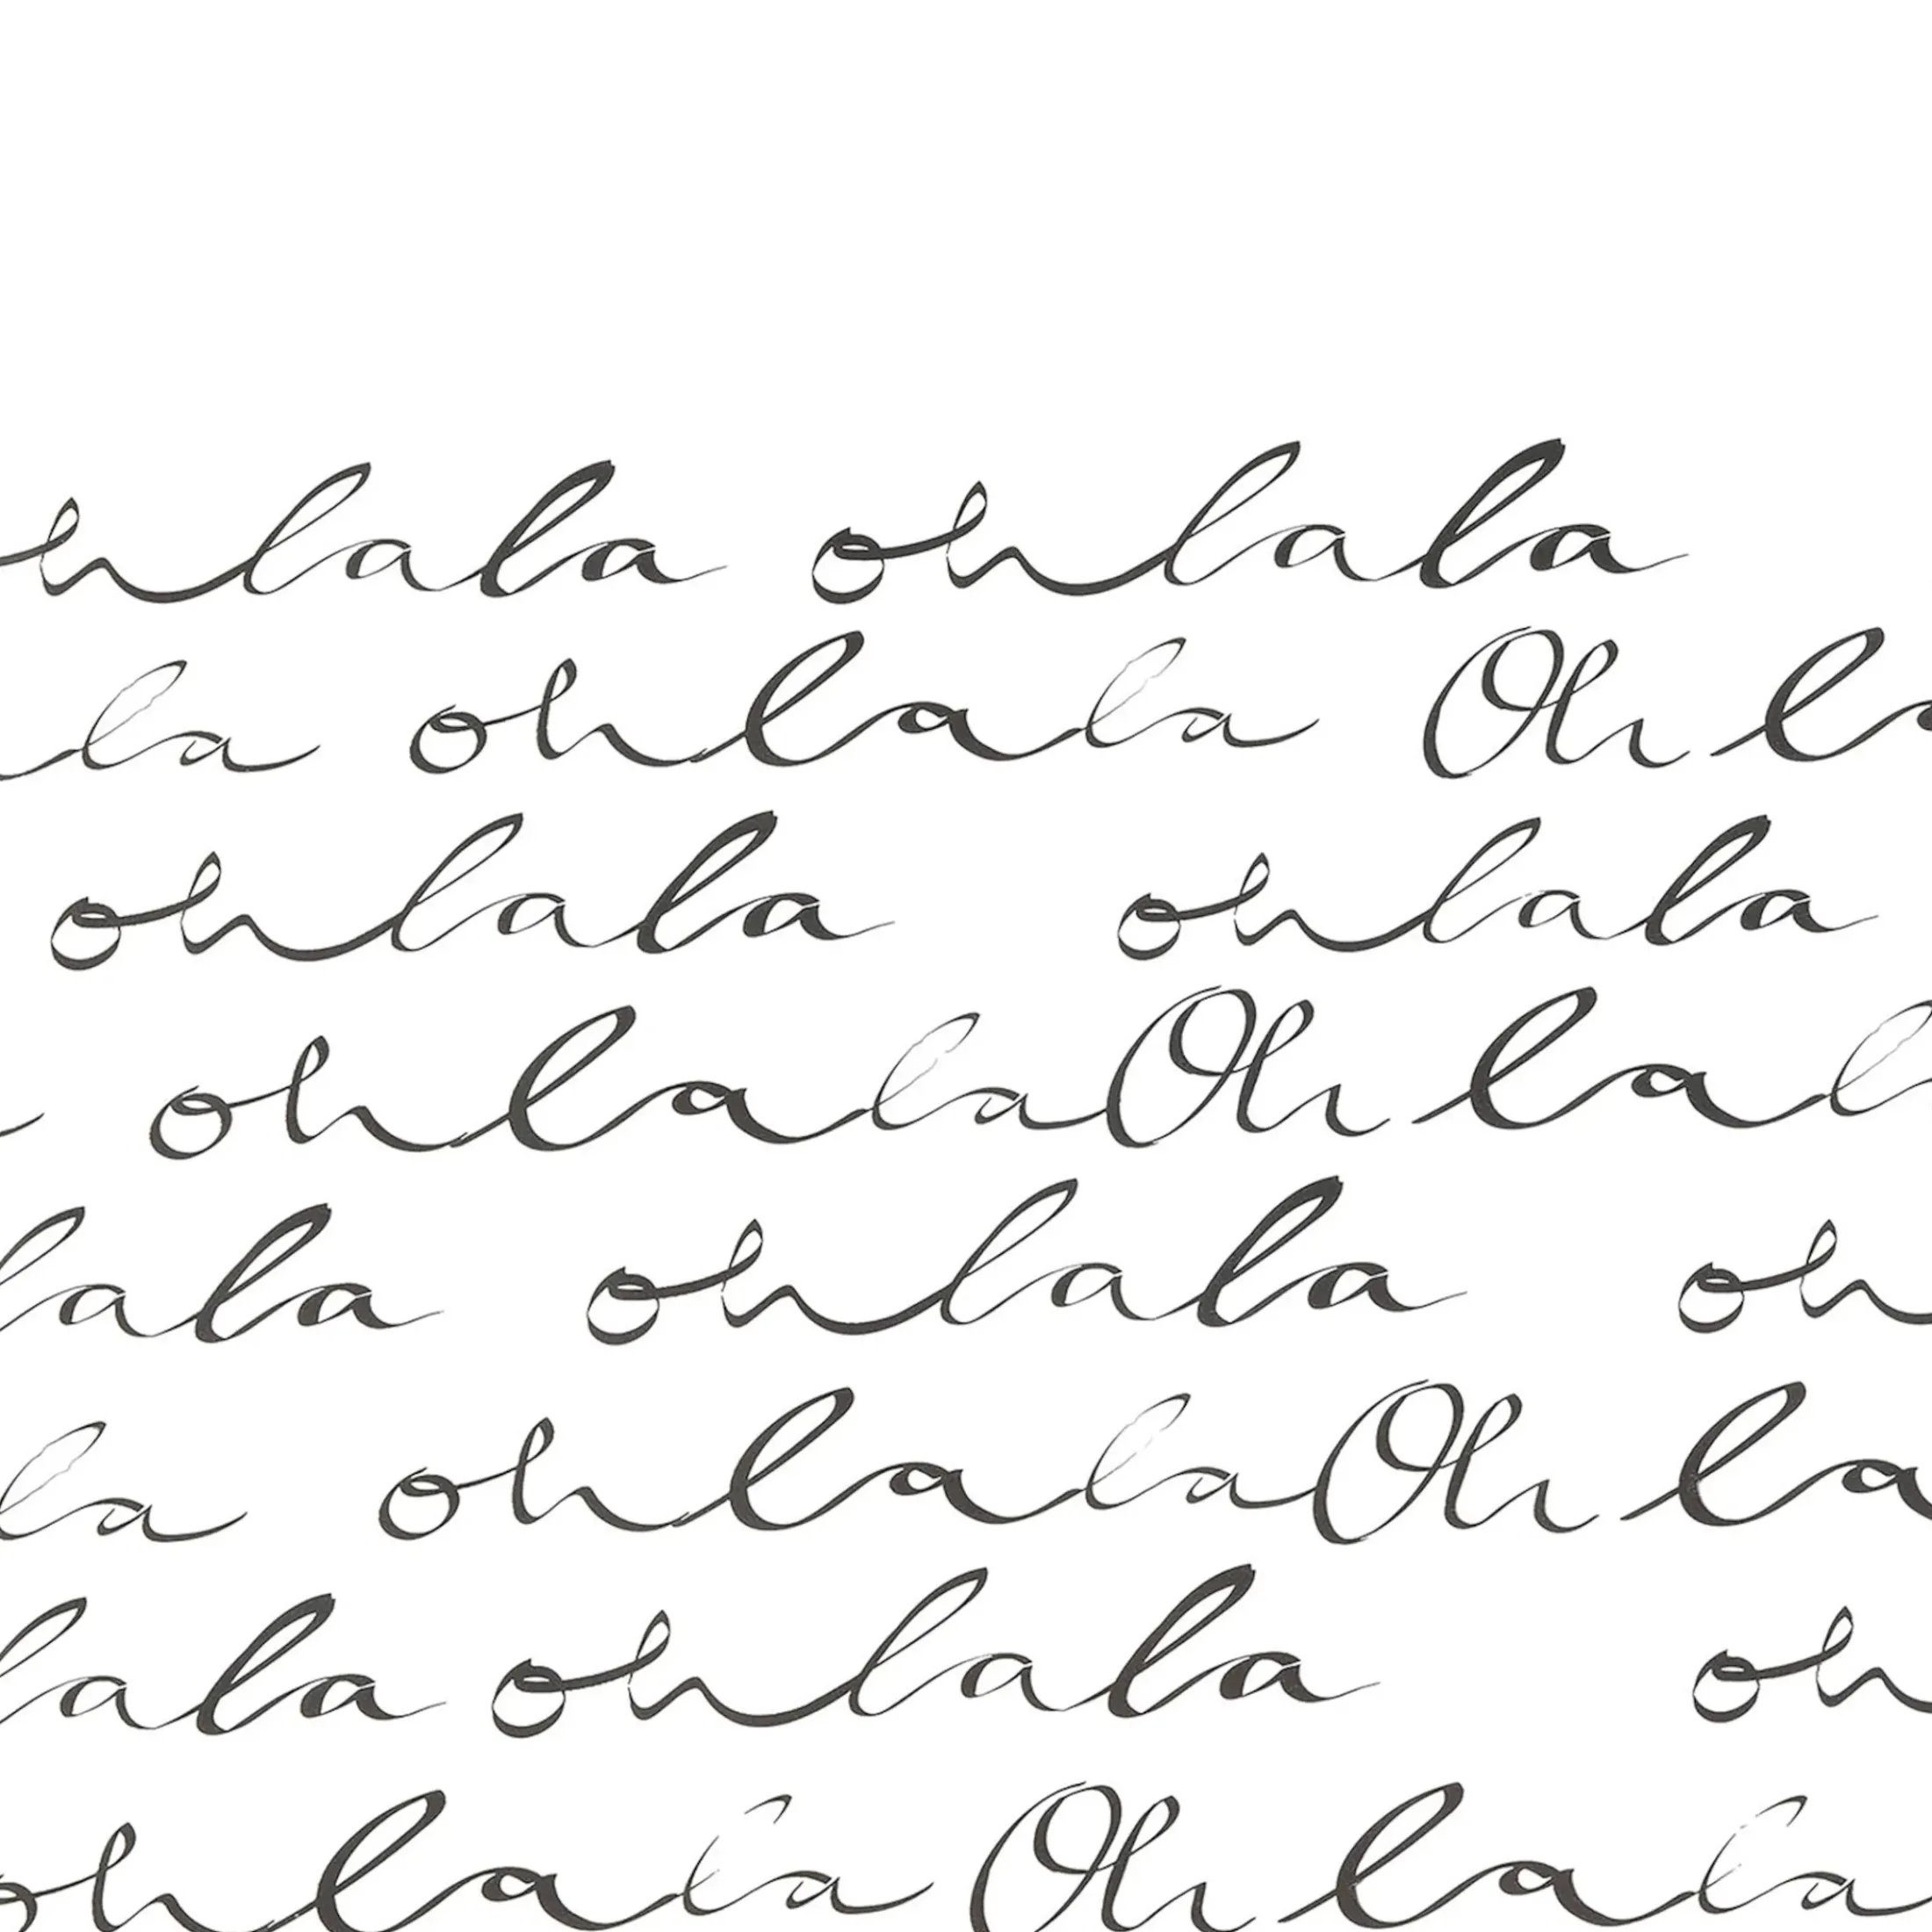 hlala ohlala
la ohlala Oh la
ohlala ohlala
ohlala Oh lal
lala ohlala oh
la ohlala Oh la
lala ohlala oh
ohlala Oh lala